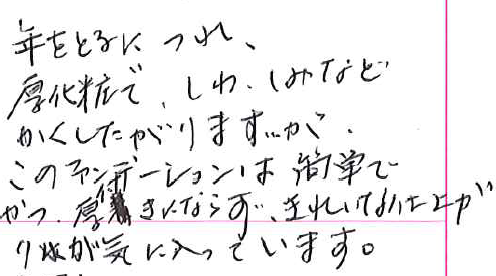 年をとるに つれ、
厚化粧で、しわ・しみなど
かくしたがりますが、
このファンデーションは 簡単で
かつ、厚着きにならず、きれいな仕上が
りが気に入っています。